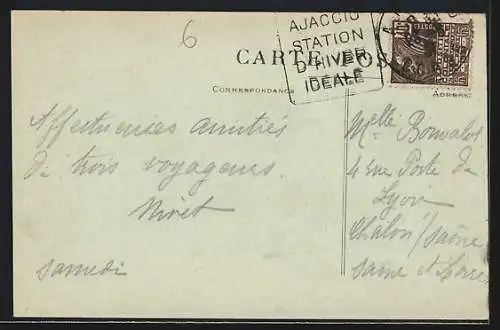 6
AJACCIO
STATION
D'HIVER
IDÉALE
CARTE POS
CORRESPONDANCE
ADRESSE
Affectueuses amitiés
de trois voyageurs.
Niret
samedi
Melle Bonvalot
4 rue Porte de
Lyon
Chalon s/ saône
saone et Loire